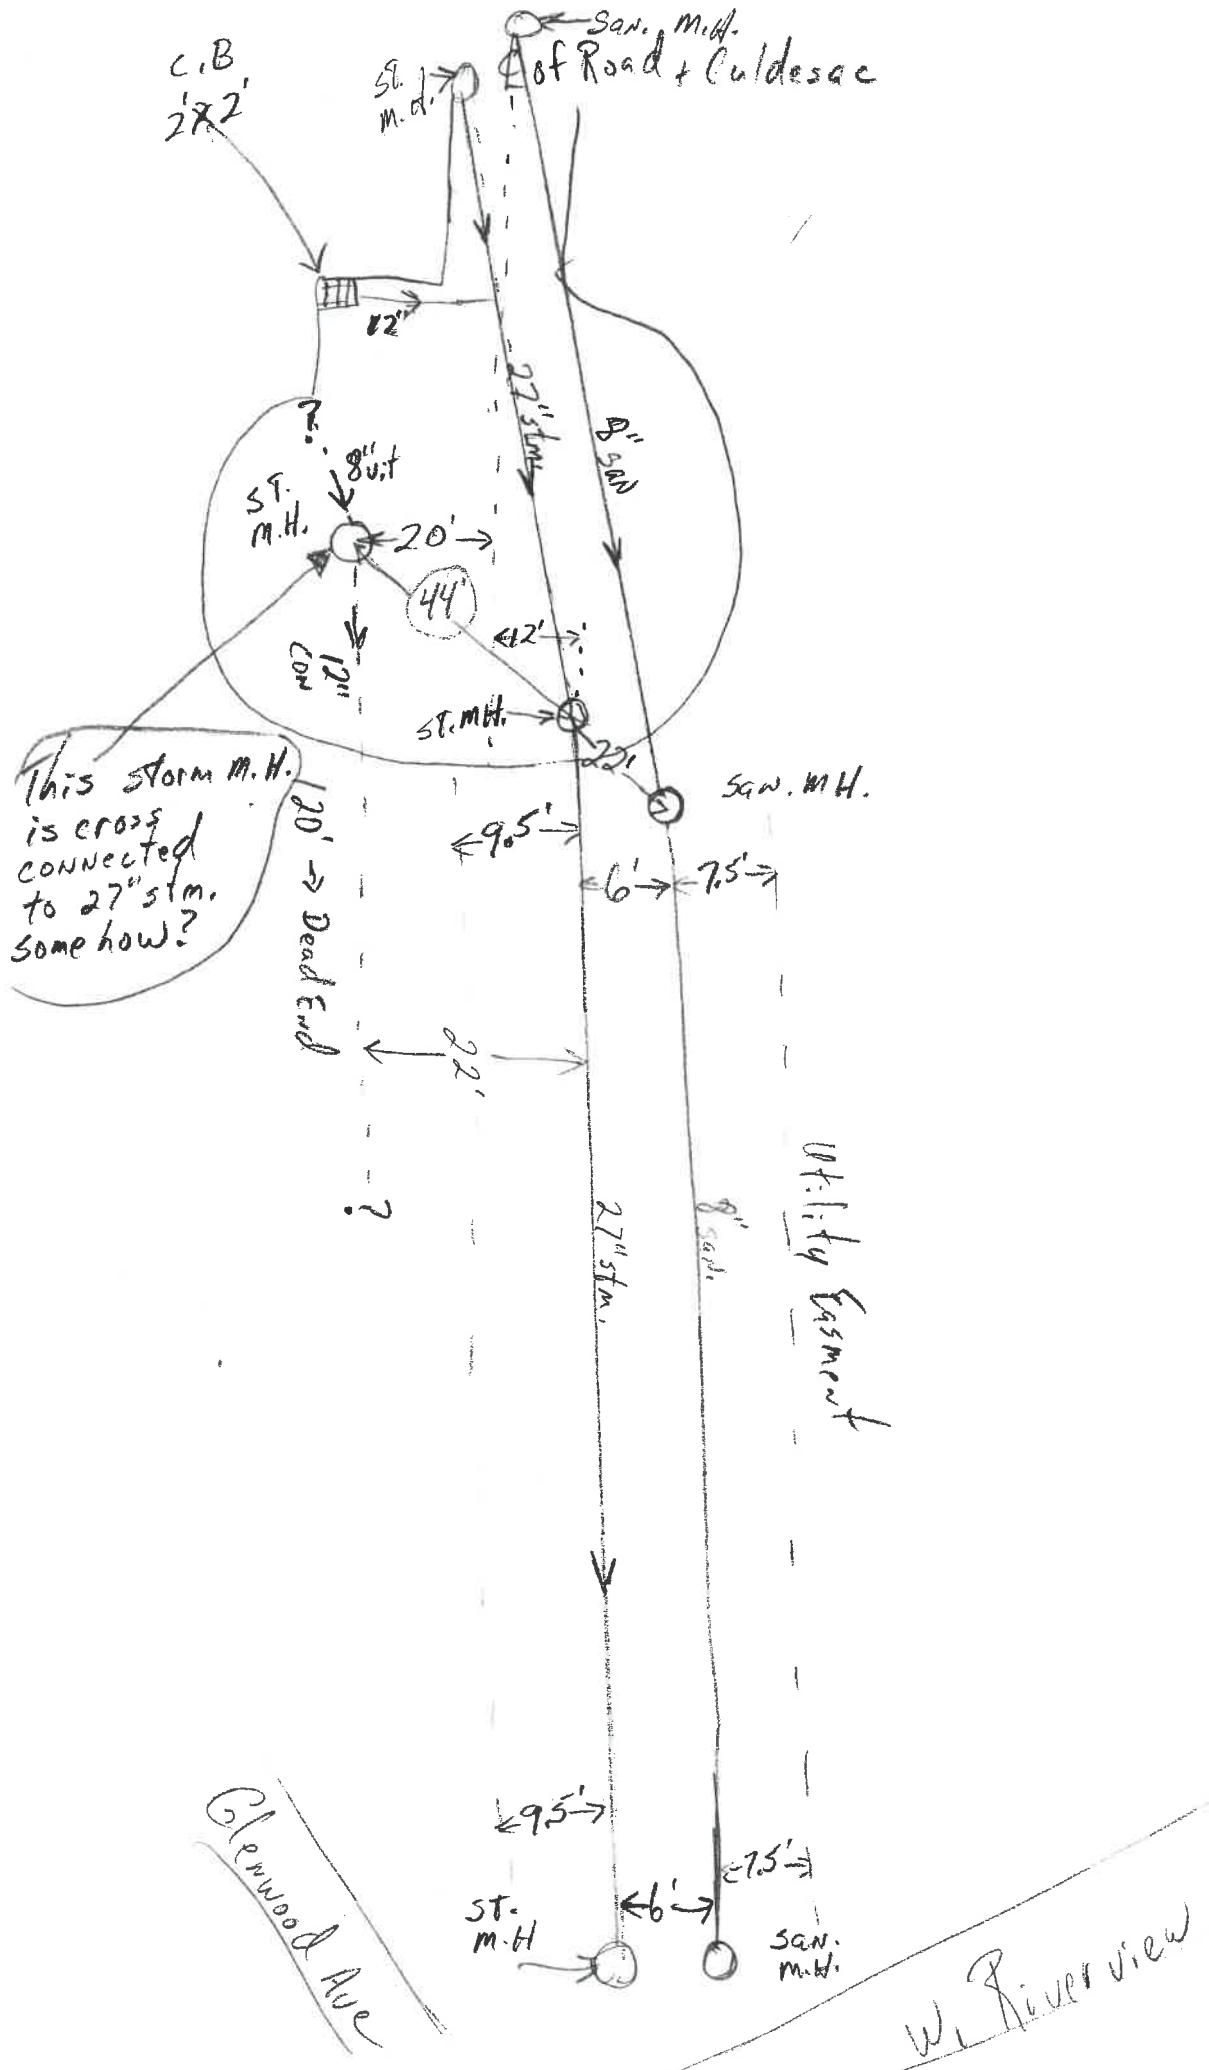 San. M.H.
of Road + Culdesac
C.B
2'x2'
ST.
M.H.
12"
27" stm.
8"
san
?
8" vit
ST.
M.H.
20'
44'
12'
12"
CON
ST. MH.
22'
San. MH.
This storm M.H.
is cross
connected
to 27" stm.
somehow?
120' → Dead End
9.5'
6'
7.5'
22'
?
27" stm.
8" san.
Utility Easment
9.5'
7.5'
6'
ST.
M.H
San.
M.H.
Glenwood Ave
W. Riverview